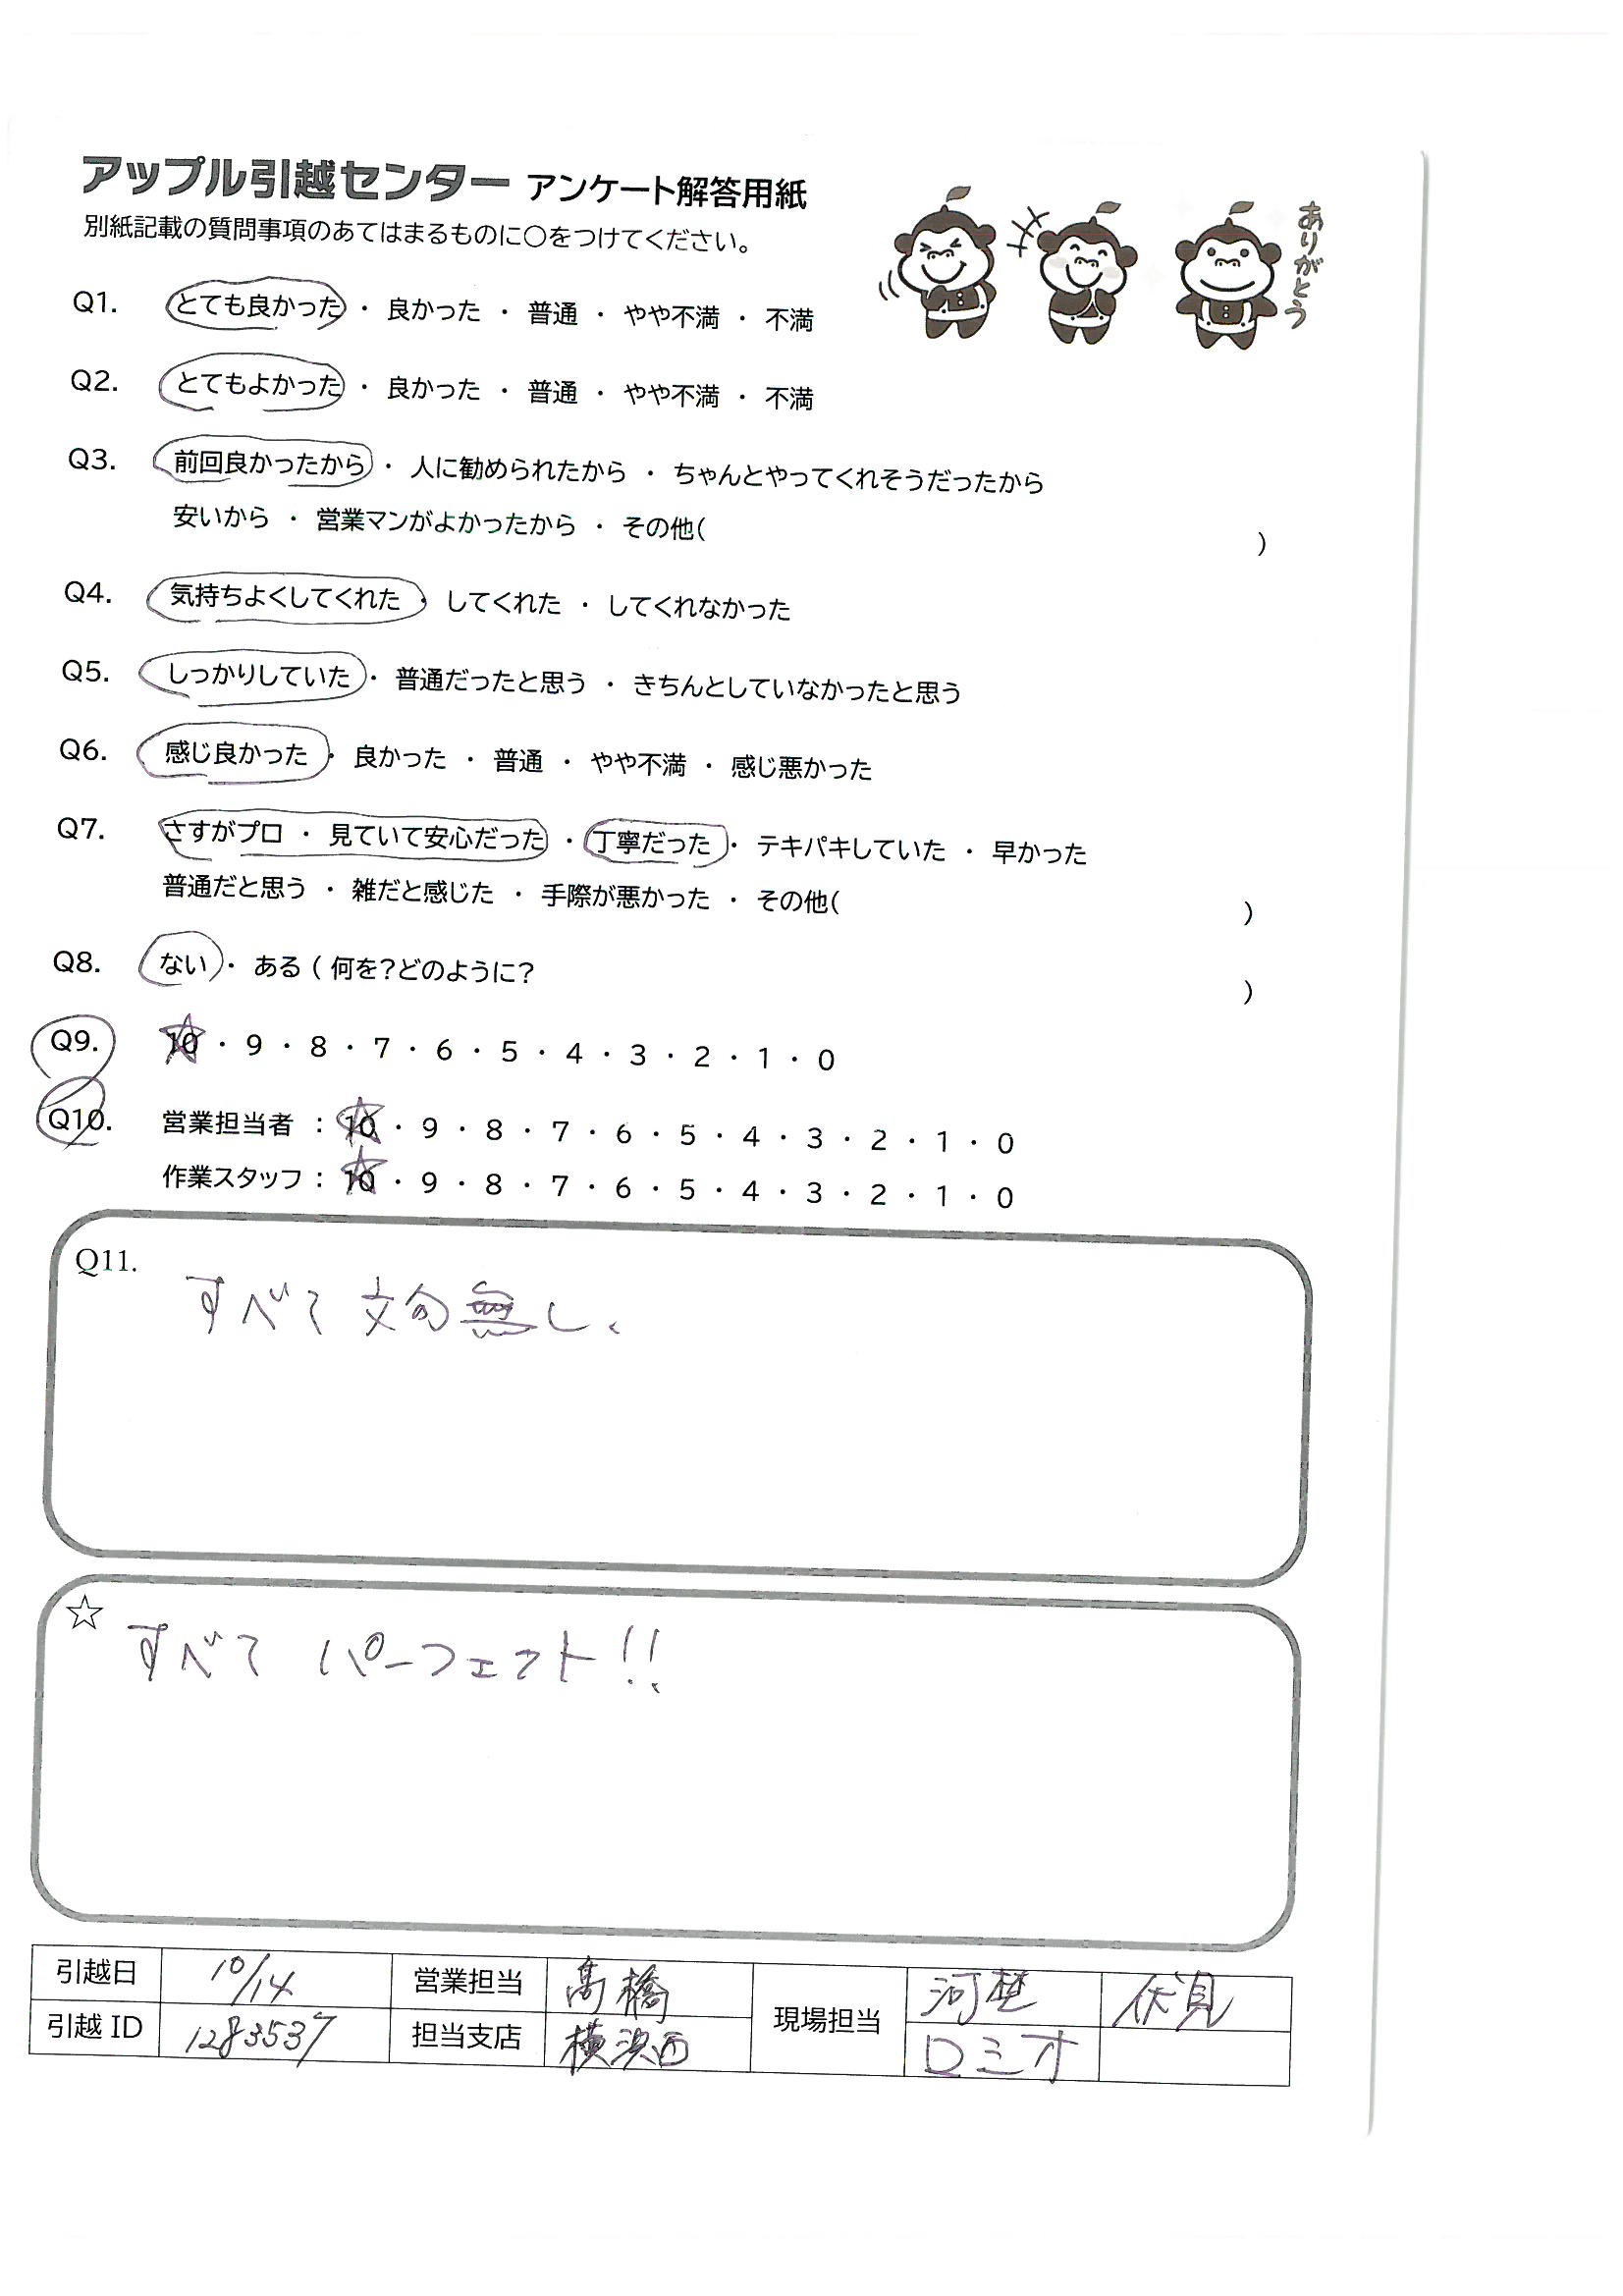 アップル引越センター アンケート解答用紙
別紙記載の質問事項のあてはまるものに○をつけてください。
ありがとう
Q1. とても良かった ・ 良かった ・ 普通 ・ やや不満 ・ 不満
Q2. とてもよかった ・ 良かった ・ 普通 ・ やや不満 ・ 不満
Q3. 前回良かったから ・ 人に勧められたから ・ ちゃんとやってくれそうだったから
安いから ・ 営業マンがよかったから ・ その他( )
Q4. 気持ちよくしてくれた ・ してくれた ・ してくれなかった
Q5. しっかりしていた ・ 普通だったと思う ・ きちんとしていなかったと思う
Q6. 感じ良かった ・ 良かった ・ 普通 ・ やや不満 ・ 感じ悪かった
Q7. さすがプロ ・ 見ていて安心だった ・ 丁寧だった ・ テキパキしていた ・ 早かった
普通だと思う ・ 雑だと感じた ・ 手際が悪かった ・ その他( )
Q8. ない ・ ある ( 何を?どのように? )
Q9. 10 ・ 9 ・ 8 ・ 7 ・ 6 ・ 5 ・ 4 ・ 3 ・ 2 ・ 1 ・ 0
Q10. 営業担当者 : 10 ・ 9 ・ 8 ・ 7 ・ 6 ・ 5 ・ 4 ・ 3 ・ 2 ・ 1 ・ 0
作業スタッフ : 10 ・ 9 ・ 8 ・ 7 ・ 6 ・ 5 ・ 4 ・ 3 ・ 2 ・ 1 ・ 0
Q11.
すべて 文句無し、
☆
すべて パーフェクト!!
引越日 10/14 営業担当 髙橋 現場担当 伏見
引越 ID 1283537 担当支店 横浜西 ロミオ